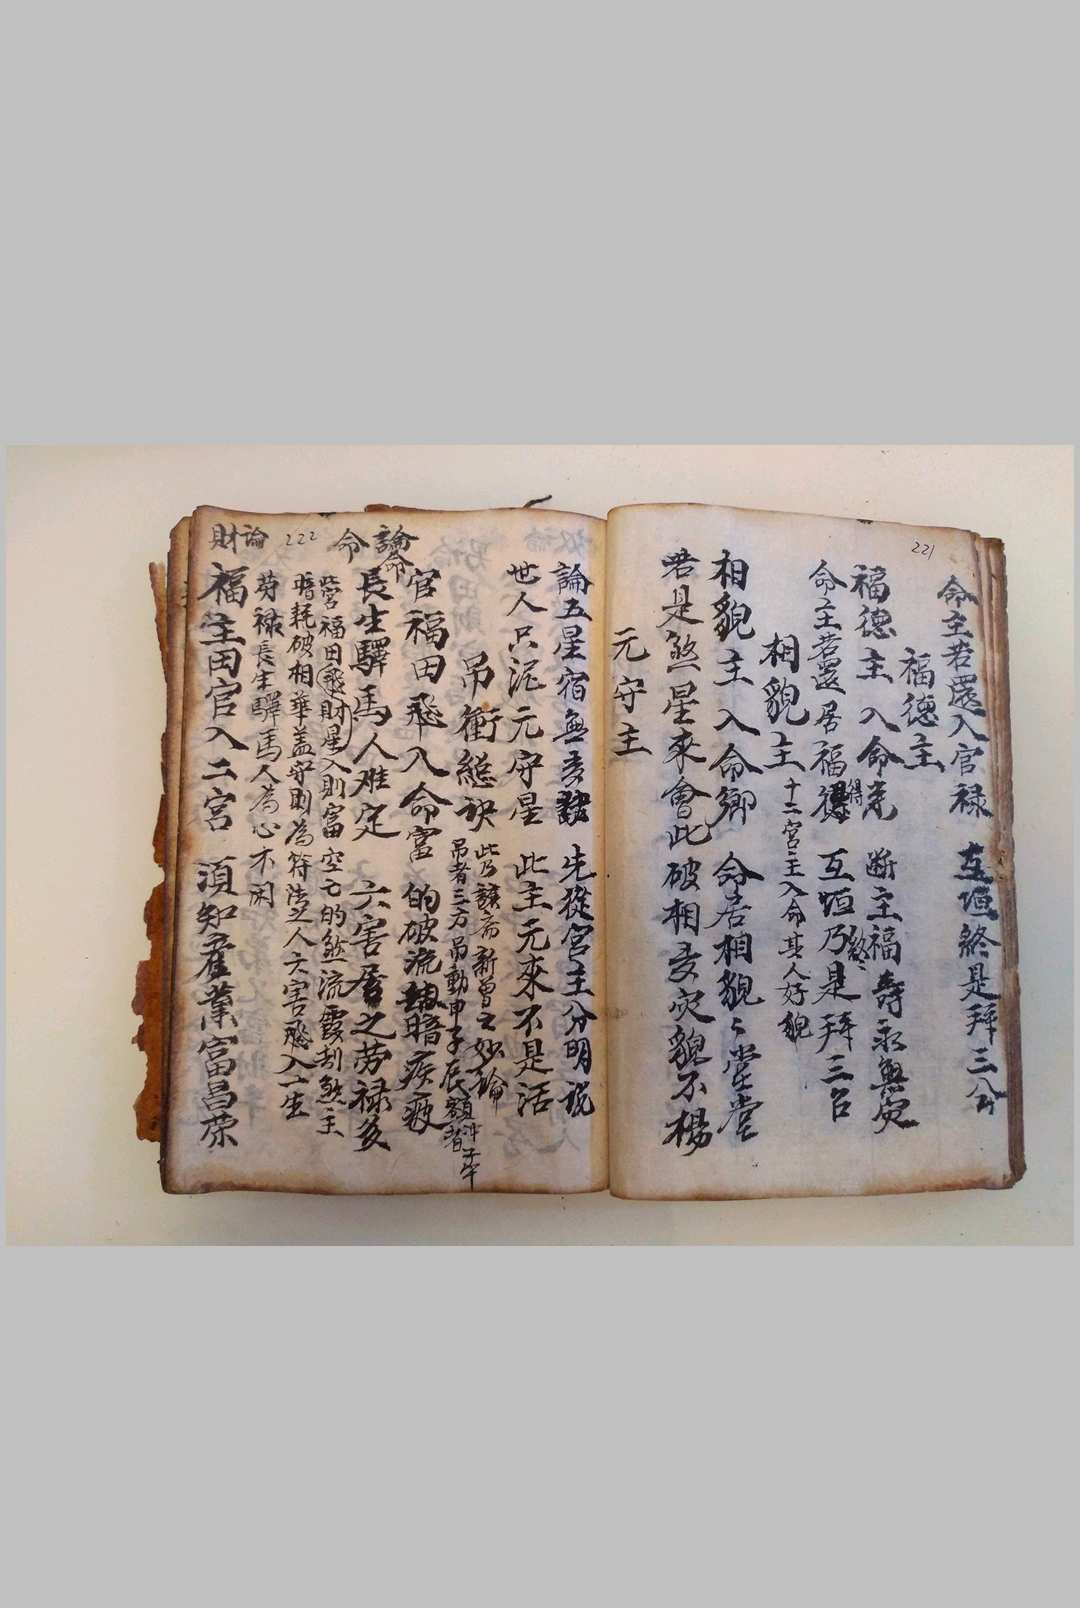 221
命主若還入官禄 互垣終是拜三公
福德主
福德主入命元 断主福壽永無灾
命主若還居福得 互垣乃是拜三台
相貌主 十二宮主入命其人好貌
相貌主入命鄉 命居相貌々堂堂
若是煞星來會此 破相多灾貌不楊
元守主
論五星宿無玄訣 先從宮主分明説
世人只泥元守星 此主元來不是活
吊衝總訣 此乃 斎新曽之妙論
吊者三方吊動申子辰 者 子午
論命
命
官福田飛入命宮 的破流 暗疾疲
長生驛馬人难定 六害居之劳禄多
此宮福田飛財星入則富空亡的煞流霞刮煞主
暗耗破相華盖守則為符法之人六害飛入一生
劳禄長生驛馬人為心不闲
222
論財
福主田官入二宮 須知産業富昌荣